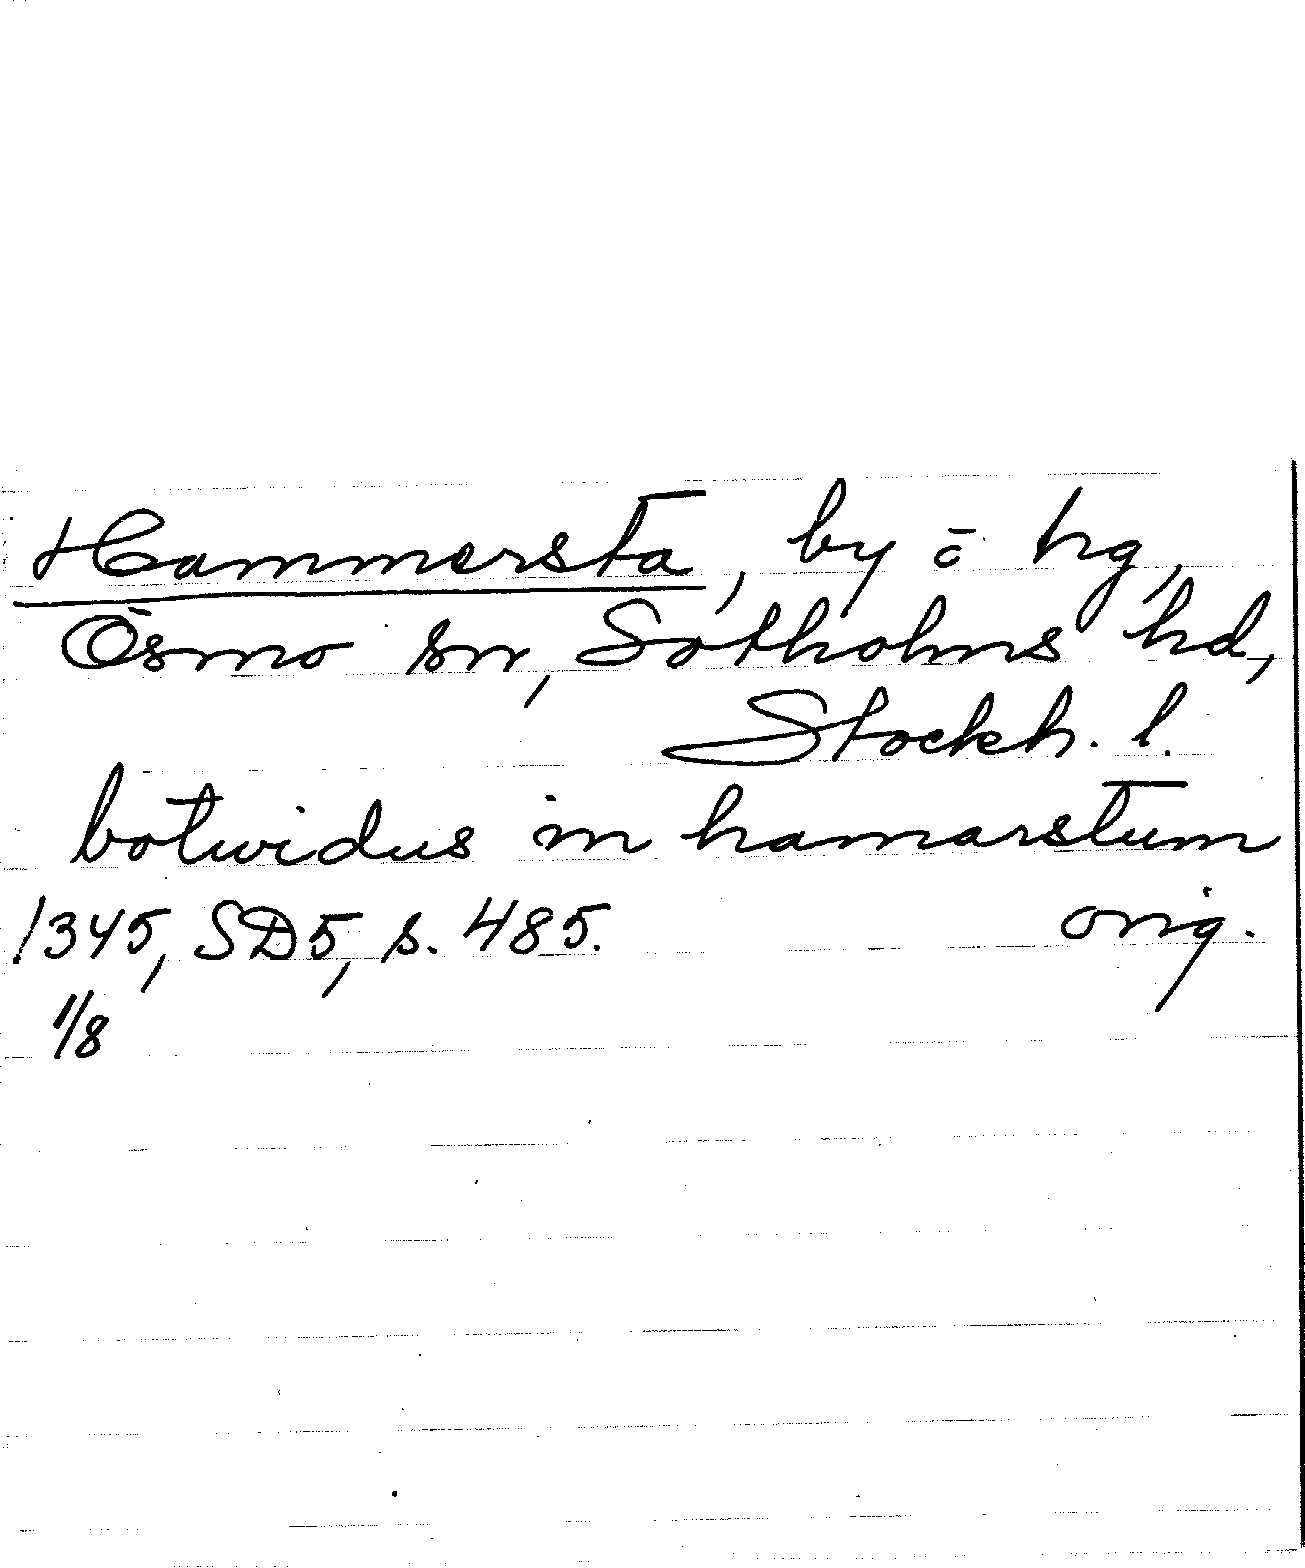 Hammersta, by ö hg,
Ösmo sn, Sotholms hd,
Stockh. l.
botwidus in hamarstum
1345, SD5, s. 485. orig.
1/8